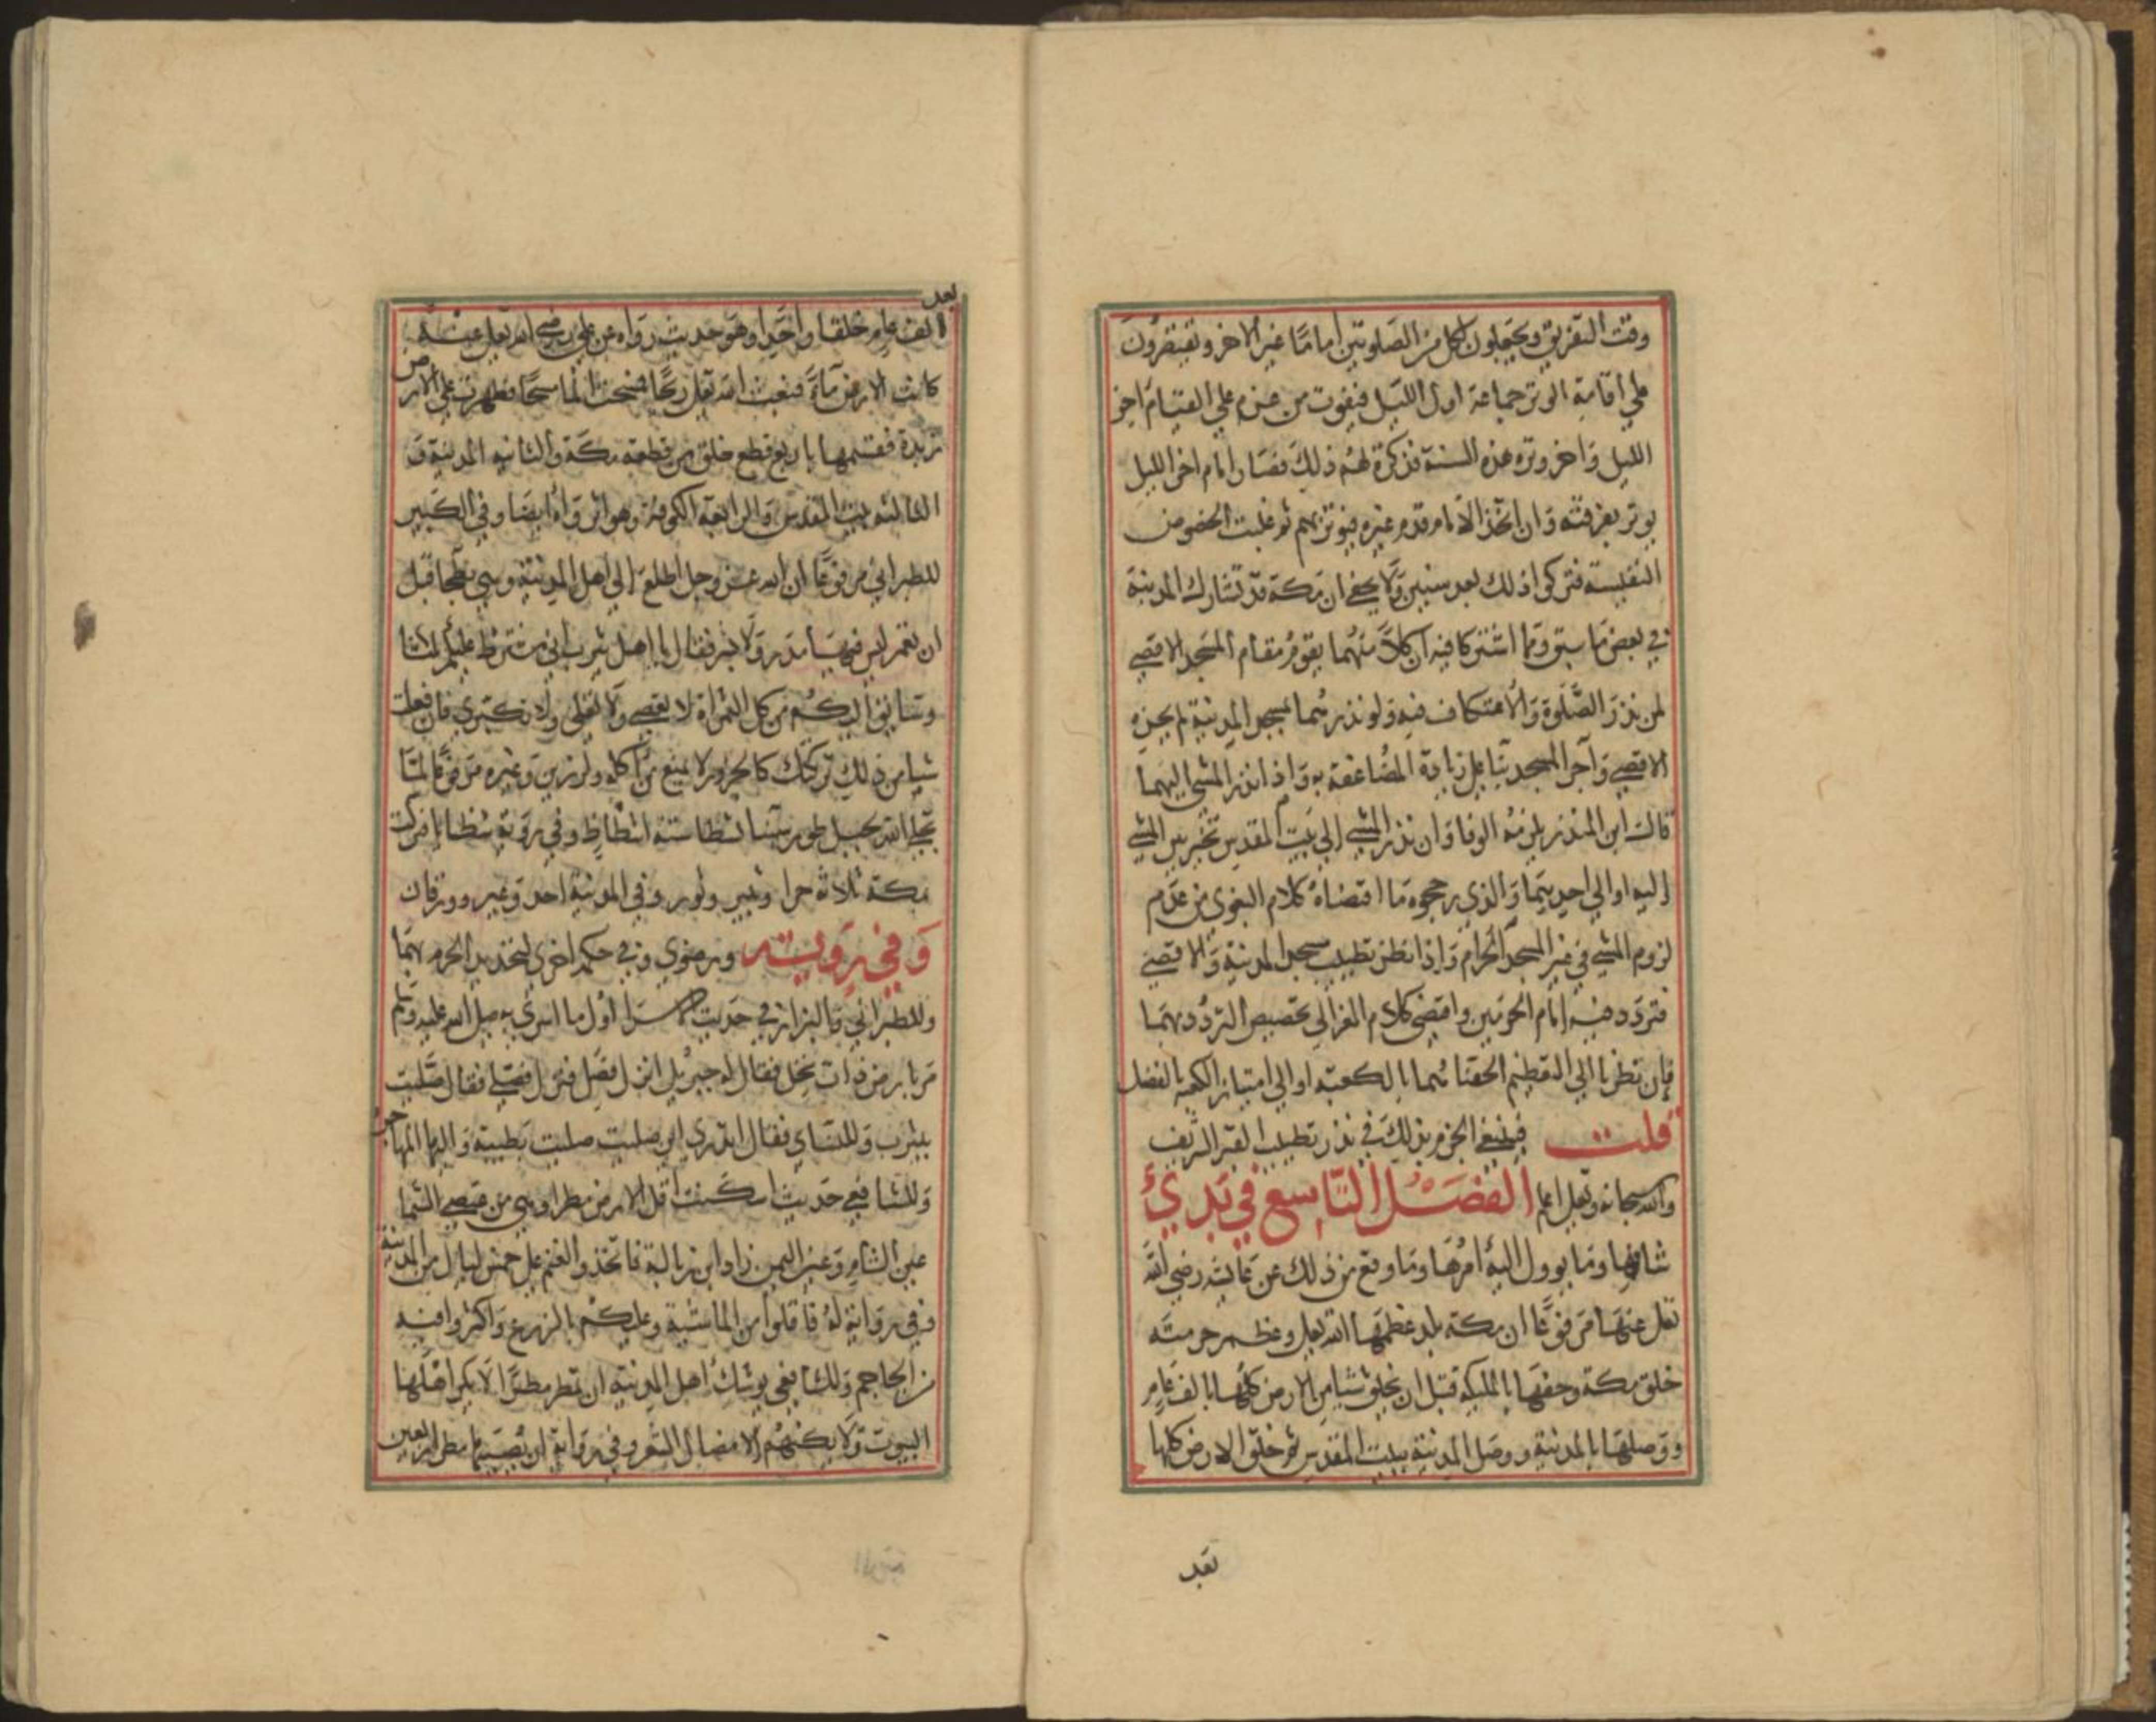 وقت التفريق ويجعلون لكل من الصلوتين اماما غير الاخر ويقتصرون
علي اقامة الوتر جماعة اول الليل فيفوت من عزم علي القيام اخر
الليل واخر وتره هذه السنة فذكرة لهم ذلك فصار امام اخر الليل
يوتر بفرقته وان اتخذ الامام قدم غيره فيوتر بهم ثم غلبت الحضوض
النفسية فتركوا ذلك بعد سنين ولا يخفي ان مكة قد تشارك المدينة
في بعض ما سبق ومما اشتركا فيه ان كلا منهما يقوم مقام المسجد الاقصي
لمن نذر الصلوة والاعتكاف فيه ولو نذرهما بمسجد المدينة لم يجزه
الاقصي واجزا المسجد بنا علي زيادة المضاعفة به واذا نذر المشي اليهما
قال ابن المنذر يلزمه الوفا وان نذر المشي الي بيت المقدس تخير بين المشي
اليه او الي احديهما والذي رجحوه ما اقتضاه كلام البغوي من عدم
لزوم المشي في غير المسجد الحرام واذا نظر تطييب مسجد المدينة والاقصي
فتردد فيه امام الحرمين واقتضي كلام الغزالي تخصيص التردد بهما
فان نظرنا الي التعظيم الحقناهما بالكعبة او الي امتياز الكعبة بالفضل
قلت فينبغي الجزم بذلك في نذر تطييب القبر الشريف
والله سبحانه وتعلي اعلم الفصل التاسع في بدئ
شانها وما يوول اليه امرها وما وقع من ذلك عن عايشه رضي الله
تعلي عنها مرفوعا ان مكة بلد عظمها الله تعلي وعظم حرمته
خلق مكة وحفها بالمليكه قبل ان يخلق شيا من الارض كلها بالف عام
ووصلها بالمدينة ووصل المدينة ببيت المقدس ثم خلق الارض كلها
بعد
بعد
الف عام خلقا واحدا وهو حديث رواه عن علي رضي الله تعلي عنه
كانت الارض ماء فبعث الله تعلي ريحا فمسحت الما مسحا فظهرت علي الارض
زبدة فقسمها باربع قطع خلق من قطعه مكة والثانيه المدينة و
الثالثه بيت المقدس والرابعه الكوفة وهو اثر واه ايضا وفي الكبير
للطبراني مرفوعا ان الله عز وجل اطلع الي اهل المدينة وهي بطحا قبل
ان تعمر ليس فيها مدر ولا بشر فقال يا اهل يثرب اني مشترط عليكم ثلاثا
وسايق اليكم من كل الثمراة لا تعصي ولا تغلي ولا تكتبري فان فعلت
شيا من ذلك تركتك كالجزور لا يمنع من اكله ولرزين وغيره مرفوعا لما
تجلي الله لجبل طور سينا تشظا ستة اشظاظ وفي روية شظايا فنزلت
بمكة ثلاثه حرا وثبير وثور وفي المدينة احد وعير وورقان
وفي روية ورضوي وفي حكمه اخري لتحديد الحرم بهما
وللطبراني والبزار في حديث الاسرا اول ما اسري به صلي الله عليه وسلم
مر بارض ذات نخل فقال له جبريل انزل فصل فنزل فصلي فقال صليت
بيثرب وللنساي فقال اتدري اين صليت صليت بطيبة واليها المهاجر
وللشافعي حديث اسكنت اقل الارض مطرا وهي من عيني السما
عين الشام وعين اليمن زاد ابن زبالة فاتخذوا الغنم علي خمس ليال من المدينة
وفي رواية له فاقلوا من الماشية وعليكم بالزرع واكثروا فيه
من الجماجم وللشافعي يوشك اهل المدينة ان تمطر مطرا لا يكن اهلها
البيوت ولا يكنهم الا مضال الشعر وفي رواية ان يصيبها مطر اربعين